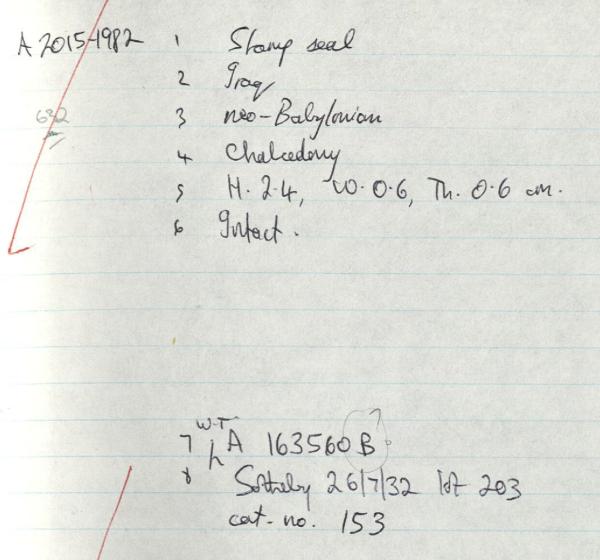 A 2015-1982 1 Stamp seal
2 Iraq
632
3 neo-Babylonian
4 Chalcedony
5 H. 2.4, W. 0.6, Th. 0.6 cm.
6 Intact.
?
W.T
7 h A 163560 B
8 Sotheby 26/7/32 lot 203
cat. no. 153